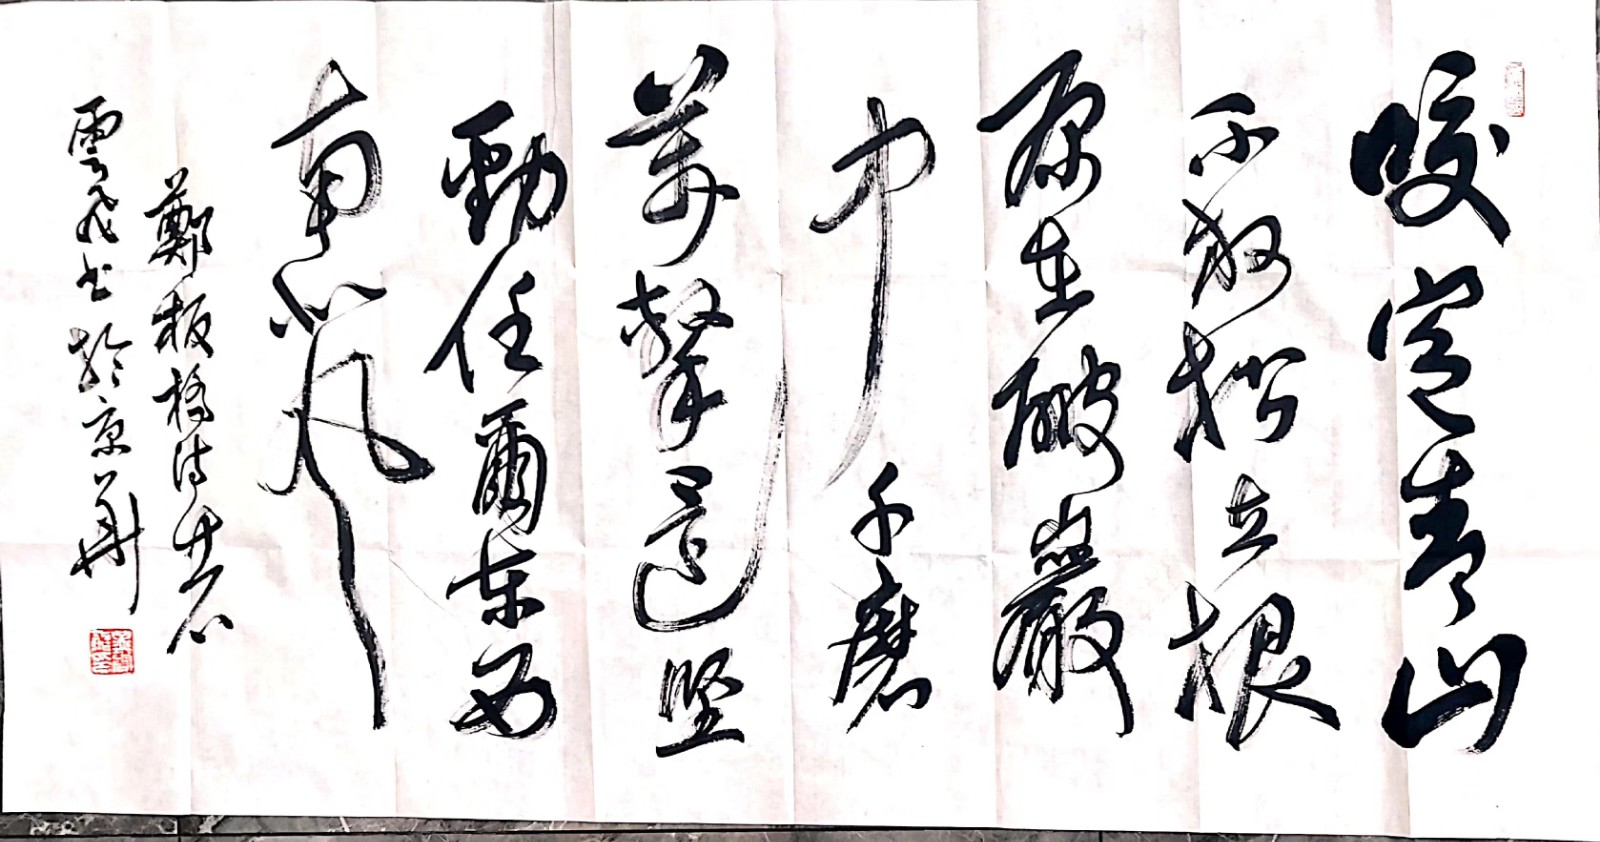 咬定青山
不放松立根
原在破巖
中千磨
萬擊還坚
勁任爾东西
南北风
鄭板橋诗竹石
雲飞书於京華